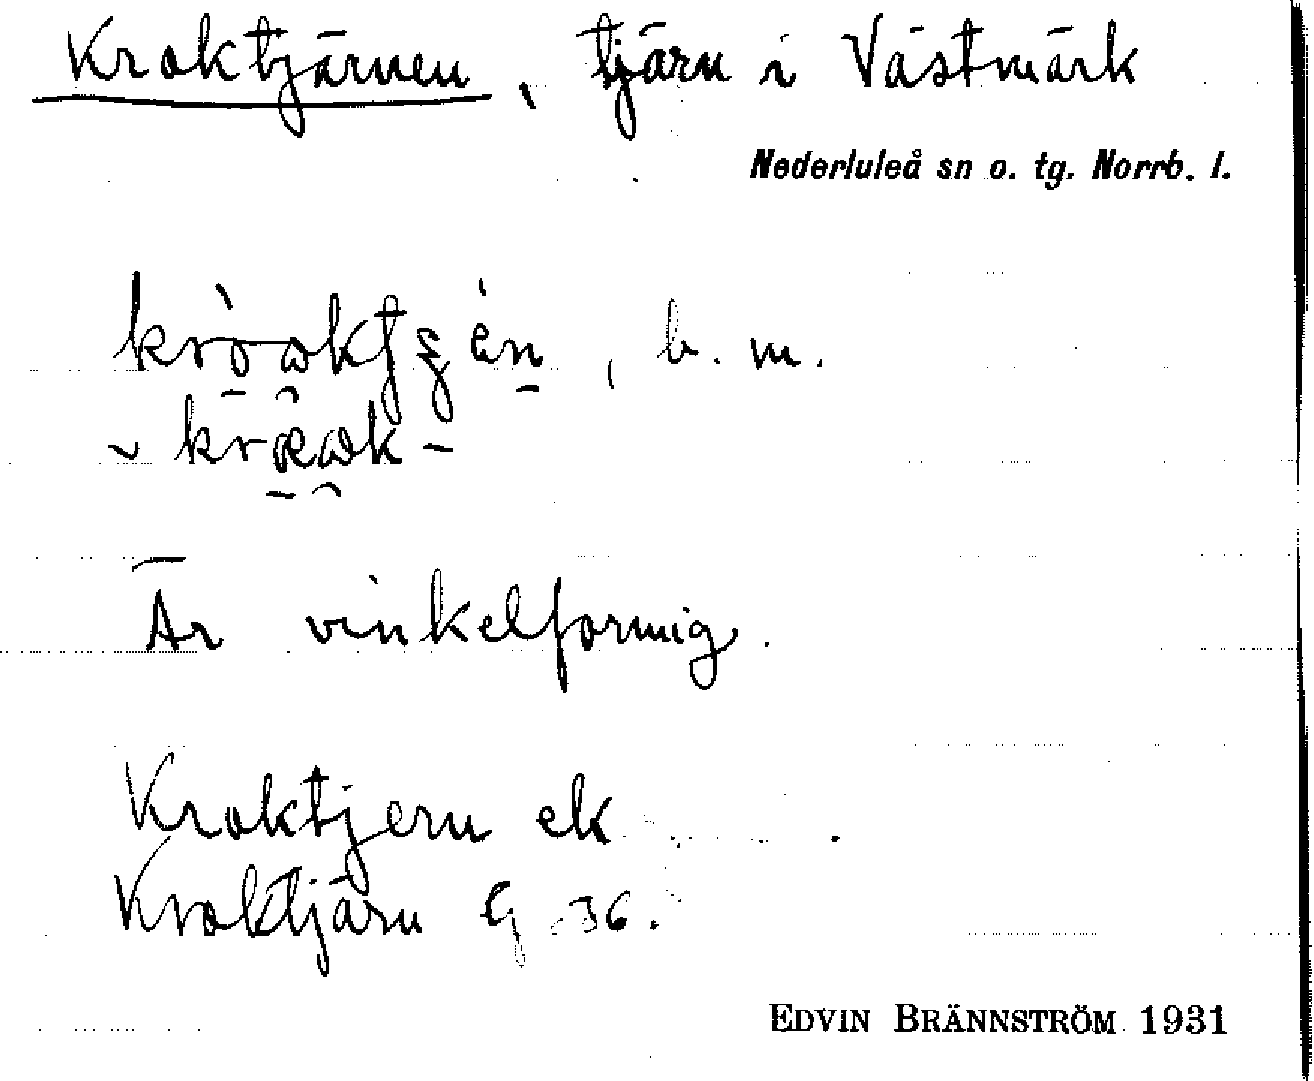 Kroktjärnen, tjärn i Västmark
Nederluleå sn o. tg. Norrb. l.
b. m.
Är vinkelformig.
Kroktjern ek
Kroktjärn G 36.
EDVIN BRÄNNSTRÖM 1931